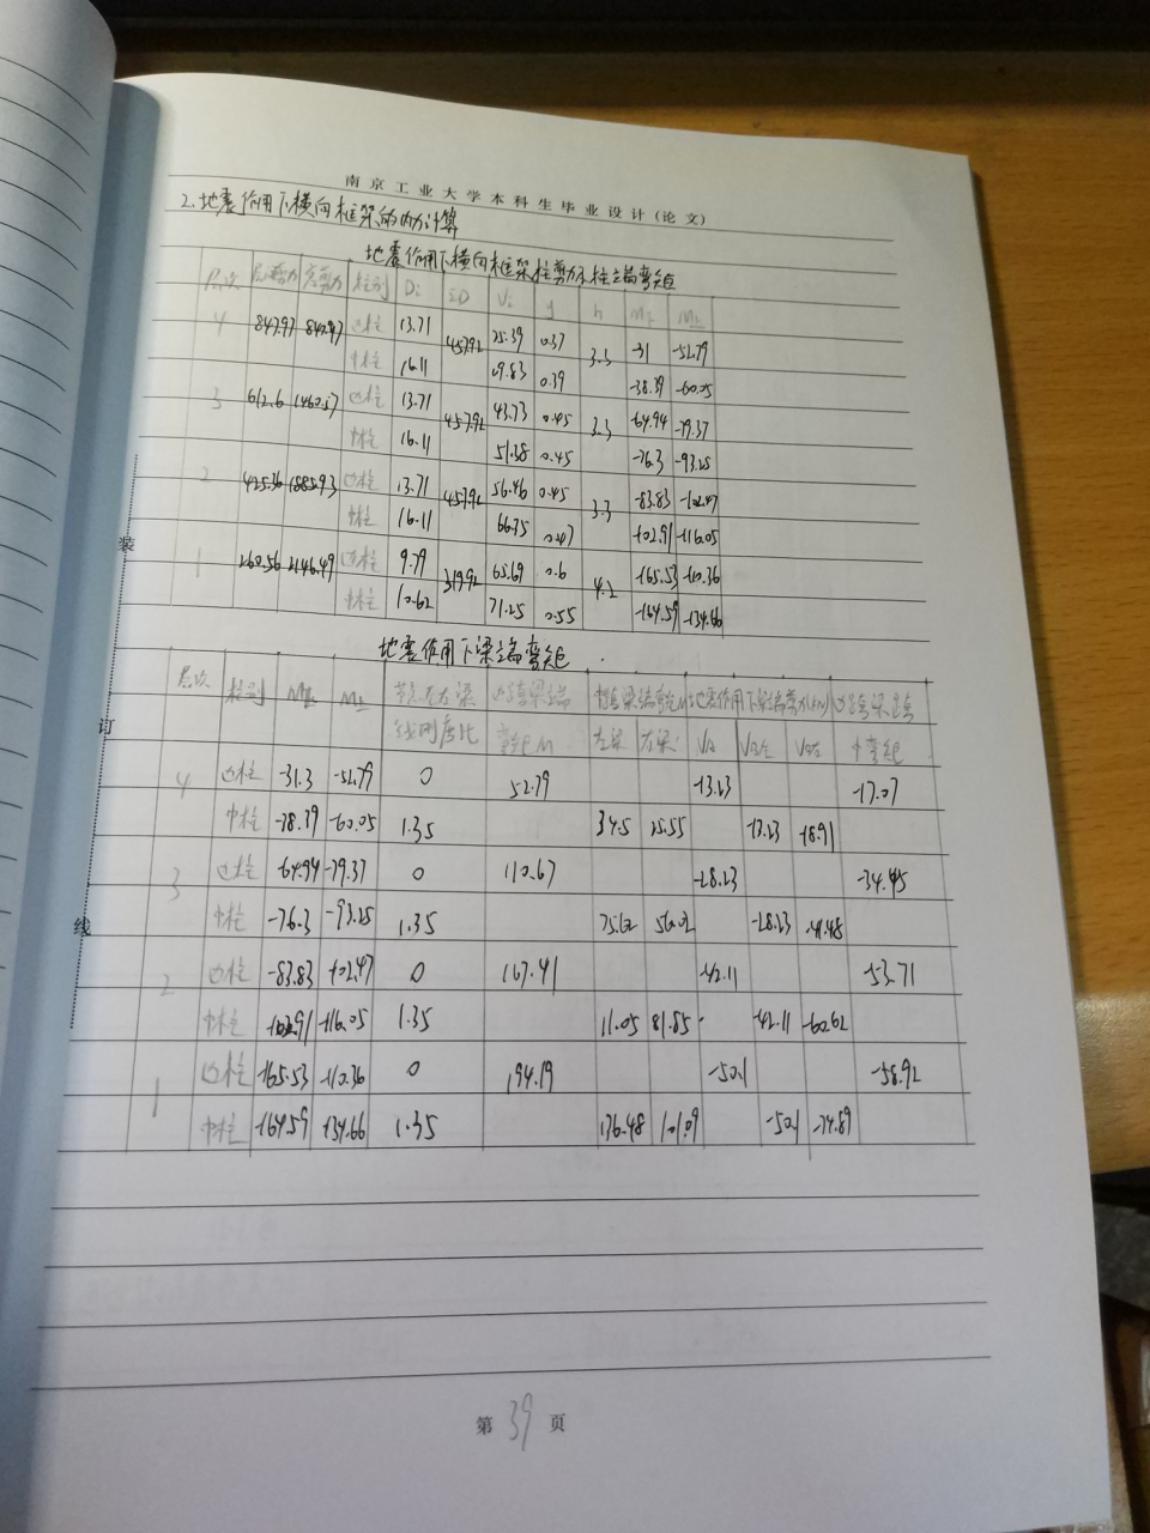 南京工业大学本科生毕业设计(论文)
2.地震作用下横向框架的内力计算
地震作用下横向框架柱剪力和柱端弯矩
层次 层剪力 柱别 Di ΣD Vi y h M下 M上
4 847.97 847.97 边柱 13.71 457.92 25.39 0.37 3.3 -31 -52.79
中柱 16.11 29.83 0.39 -38.39 -60.05
3 612.6 1460.57 边柱 13.71 457.92 43.73 0.45 3.3 -64.94 -79.37
中柱 16.11 51.38 0.45 -76.3 -93.25
2 425.36 1885.93 边柱 13.71 457.92 56.46 0.45 3.3 -83.83 -102.47
中柱 16.11 66.35 0.47 -102.91 -116.05
1 260.56 2146.49 边柱 9.79 319.92 65.69 0.6 4.2 -165.53 -110.36
中柱 10.62 71.25 0.55 -164.59 -134.66
地震作用下梁端弯矩
层次 柱别 M下 M上 节点左右梁 边跨梁端 中跨梁端弯矩M 地震作用下梁端剪力(kN) 边跨梁跨
线刚度比 弯矩M 左梁 右梁 VA VB左 VB右 中弯矩
4 边柱 -31.3 -52.79 0 52.79 -13.23 -17.07
中柱 -38.39 -60.05 1.35 34.5 25.55 -13.23 -18.91
3 边柱 -64.94 -79.37 0 110.67 -28.23 -34.45
中柱 -76.3 -93.25 1.35 75.62 56.02 -28.23 -41.48
2 边柱 -83.83 -102.47 0 167.41 -42.11 -53.71
中柱 -102.91 -116.05 1.35 11.05 81.85 -42.11 -60.62
1 边柱 -165.53 -110.36 0 194.19 -50.1 -58.92
中柱 -164.59 -134.66 1.35 136.48 101.09 -50.1 -74.89
装
订
线
第 39 页